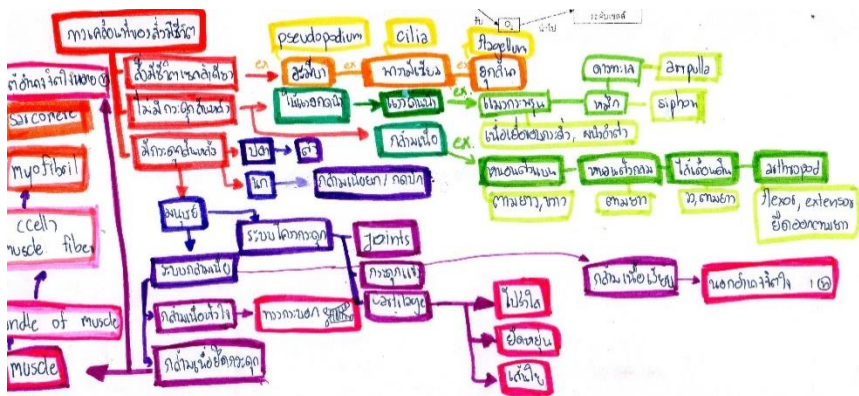 การเคลื่อนที่ของสิ่งมีชีวิต
pseudopodium
cilia
flagellum
สิ่งมีชีวิตเซลล์เดียว
ex
อะมีบา
ex
พารามีเซียม
ex
ยูกลีนา
ไม่มีกระดูกสันหลัง
ex.
แมงกะพรุน
ดาวทะเล
ampulla
หมึก
siphon
เนื้อเยื่อขอบกระดิ่ง, ผนังลำตัว
กล้ามเนื้อ
ex.
หนอนตัวแบน
หนอนตัวกลม
ไส้เดือนดิน
arthropod
ตามยาว, ขวาง
ตามยาว
วง, ตามยาว
flexor, extensor
มีกระดูกสันหลัง
ปลา
นก
กล้ามเนื้อยก / กดปีก
มนุษย์
ระบบโครงกระดูก
joints
กระดูกแข็ง
cartilage
โปร่งใส
ยืดหยุ่น
เส้นใย
ระบบกล้ามเนื้อ
กล้ามเนื้อเรียบ
นอกอำนาจจิตใจ
กล้ามเนื้อหัวใจ
ทรงกระบอก
กล้ามเนื้อยึดกระดูก
sarcomere
myofibril
(cell)
muscle fiber
bundle of muscle
muscle